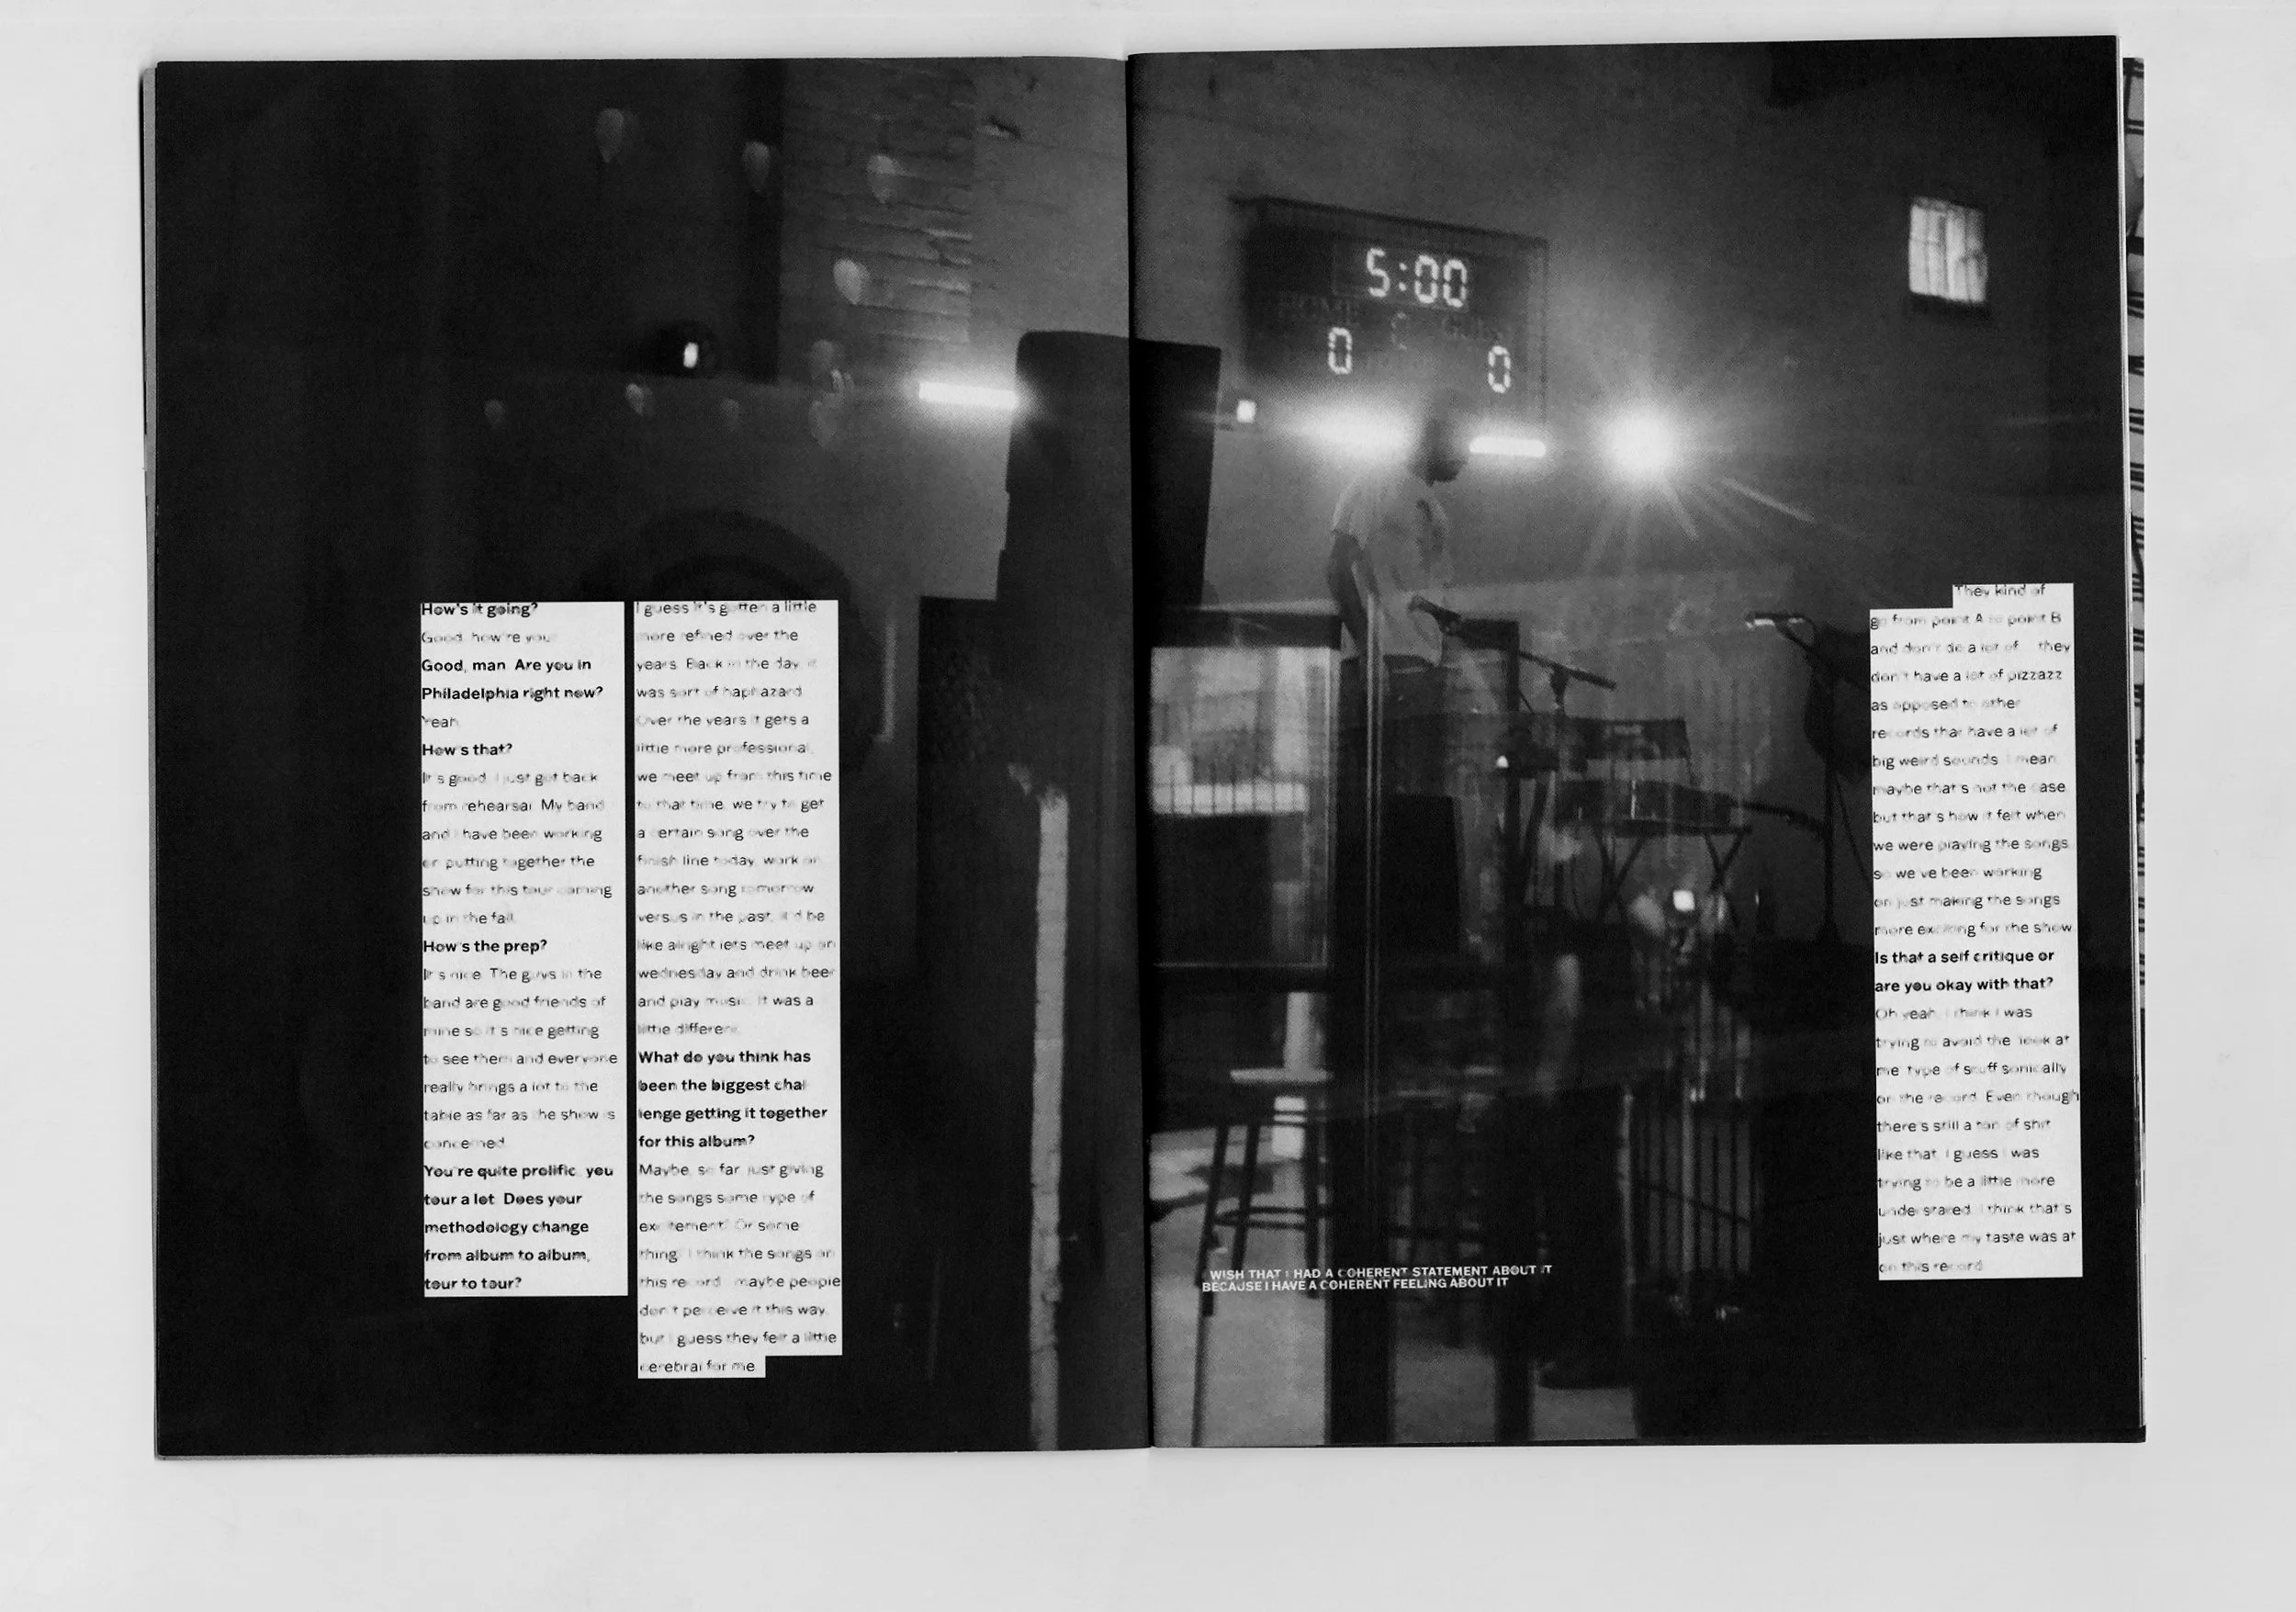 How's it going?
Good, how're you
Good, man. Are you in
Philadelphia right now?
Yeah
How's that?
It's good. I just got back
from rehearsal. My band
and I have been working
on putting together the
show for this tour coming
up in the fall
How's the prep?
It's nice. The guys in the
band are good friends of
mine so it's nice getting
to see them and everyone
really brings a lot to the
table as far as the show is
concerned
You're quite prolific, you
tour a lot. Does your
methodology change
from album to album,
tour to tour?
I guess it's gotten a little
more refined over the
years. Back in the day it
was sort of haphazard
Over the years it gets a
little more professional,
we meet up from this time
to that time, we try to get
a certain song over the
finish line today, work on
another song tomorrow
versus in the past, it'd be
like alright lets meet up on
wednesday and drink beer
and play music. It was a
little different
What do you think has
been the biggest chal
lenge getting it together
for this album?
Maybe, so far just giving
the songs some type of
excitement? Or some
thing. I think the songs on
this record, maybe people
don't perceive it this way,
but I guess they felt a little
cerebral for me
They kind of
go from point A to point B
and don't do a lot of they
don't have a lot of pizzazz
as opposed to other
records that have a lot of
big weird sounds. I mean,
maybe that's not the case
but that's how it felt when
we were playing the songs
so we've been working
on just making the songs
more exciting for the show
Is that a self critique or
are you okay with that?
Oh yeah. I think I was
trying to avoid the look at
me type of stuff sonically
on the record. Even though
there's still a ton of shit
like that, I guess I was
trying to be a little more
understated. I think that's
just where my taste was at
on this record
5:00
HOME GUEST
0 0
I WISH THAT I HAD A COHERENT STATEMENT ABOUT IT
BECAUSE I HAVE A COHERENT FEELING ABOUT IT